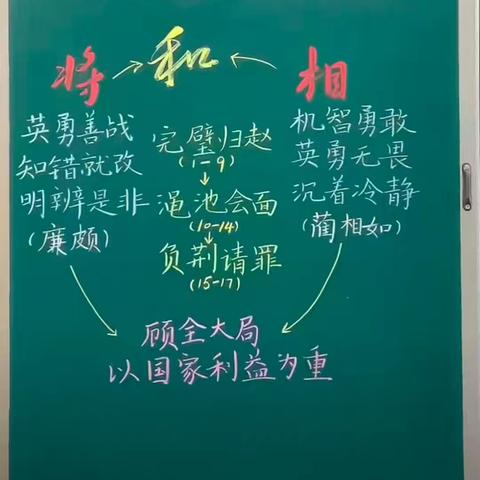 将→和←相
英勇善战
知错就改
明辨是非
(廉颇)
完璧归赵
(1-9)
↓
渑池会面
(10-14)
↓
负荆请罪
(15-17)
机智勇敢
英勇无畏
沉着冷静
(蔺相如)
顾全大局
以国家利益为重